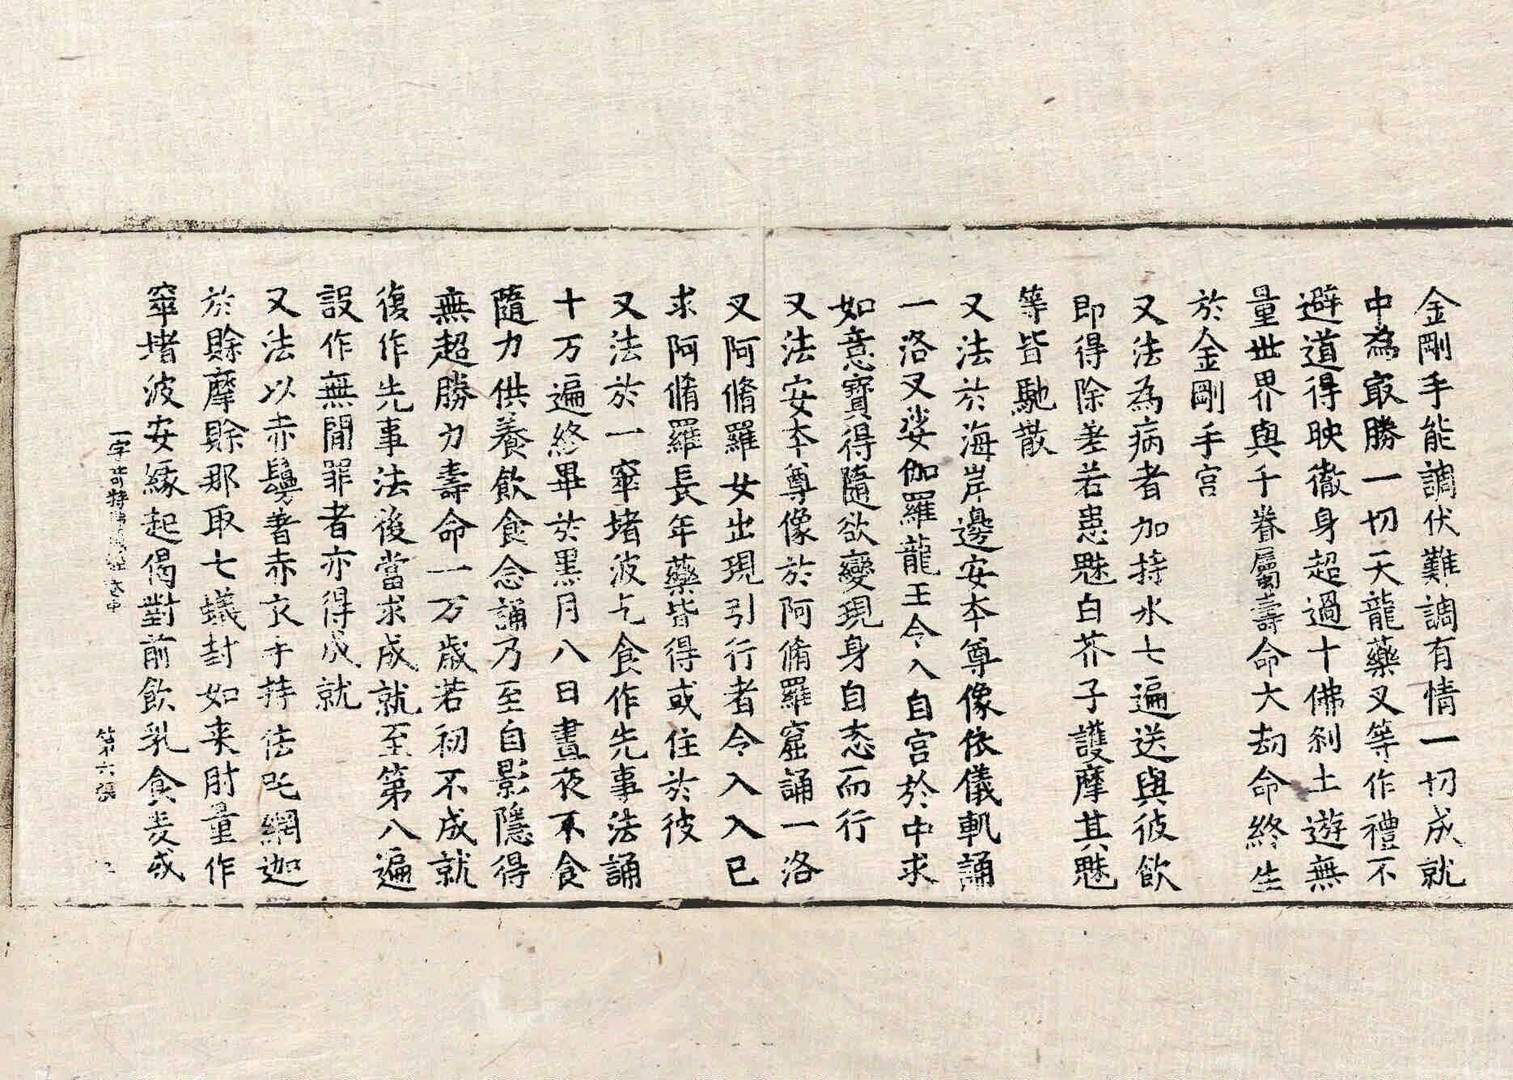 金剛手能調伏難調有情一切成就
中為冣勝一切天龍藥叉等作禮不
避道得映徹身超過十佛剎土遊無
量世界與千眷屬壽命大劫命終生
於金剛手宮
又法為病者加持水七遍送與彼飲
即得除差若患魅白芥子護摩其魅
等皆馳散
又法於海岸邊安本尊像依儀軌誦
一洛叉娑伽羅龍王令入自宮於中求
如意寶得隨欲變現身自恣而行
又法安本尊像於阿脩羅窟誦一洛
叉阿脩羅女出現引行者令入入已
求阿脩羅長年藥皆得或住於彼
又法於一窣堵波乞食作先事法誦
十万遍終畢於黑月八日晝夜不食
隨力供養飲食念誦乃至自影隱得
無超勝力壽命一万歲若初不成就
復作先事法後當求成就至第八遍
設作無間罪者亦得成就
又法以赤鬘著赤衣手持佉吒網迦
於賒摩賒那取七蟻封如来肘量作
窣堵波安緣起偈對前飲乳食麦或
一字奇特佛頂經卷中 第六張